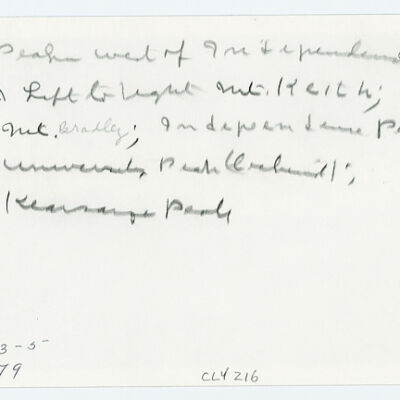 Peaks west of Independence
Left to right Mt. Keith;
Mt. Bradley; Independence Pe
University Peak (behind);
Kearsarge Peak
3-5-
79
CL4 216